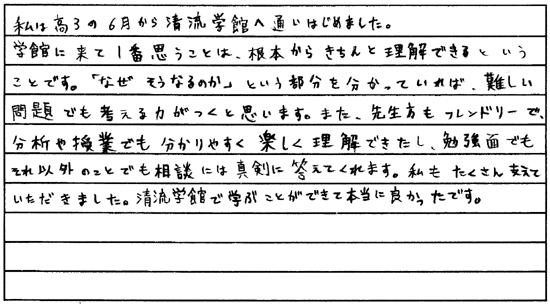 私は高3の6月から清流学館へ通いはじめました。
学館に来て1番思うことは、根本からきちんと理解できるという
ことです。「なぜ そうなるのか」という部分を分かっていれば、難しい
問題でも考える力がつくと思います。また、先生方もフレンドリーで、
分析や授業でも分かりやすく楽しく理解できたし、勉強面でも
それ以外のことでも相談には真剣に答えてくれます。私もたくさん支えて
いただきました。清流学館で学ぶことができて本当に良かったです。